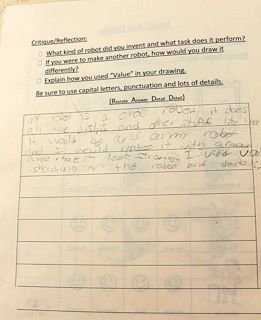 Critique/Reflection:
What kind of robot did you invent and what task does it perform?
If you were to make another robot, how would you draw it
differently?
Explain how you used "Value" in your drawing.
Be sure to use capital letters, punctuation and lots of details.
(Restate Answer Detail Detail)
my robot is a chor robot it does
all the dishis and other stuff like
It would be and army robot
and I would it with
I used
on the robot and